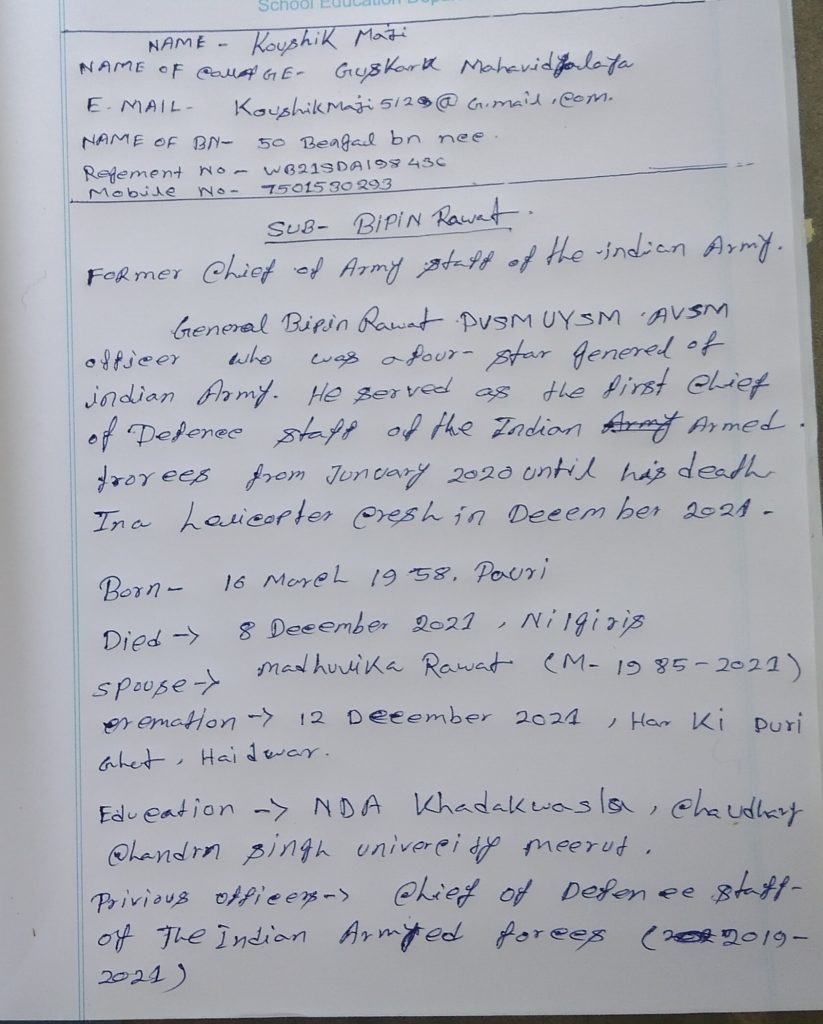 School Education
NAME - Koushik Maji
NAME OF COLLEGE- Guskara Mahavidyalaya
E. MAIL- KoushikMaji5129@G.mail.com.
NAME OF BN- 50 Bengal bn ncc.
Regement No - WB21SDA198436
Mobile No- 7501530293
SUB- BIPIN Rawat.
FORmer Chief of Army staff of the indian Army.
General Bipin Rawat PVSM UYSM AVSM
officer who was a four- star genered of
indian Army. He served as the first Chief
of Defence staff of the Indian Army Armed.
frorces from Junuary 2020 until his death
In a helicopter cresh in December 2021-
Born- 16 March 1958, Pauri
Died → 8 December 2021, Nilgiris
spouse → madhuvika Rawat (M- 1985-2021)
cremation → 12 December 2021, Har Ki Puri
Ghet, Haidwar.
Education → NDA Khadakwasla, Chaudhary
Chandra singh univercity meerut.
Privious officers → Chief of Defencee staff-
of The Indian Armyed forcees (2019-
2021)